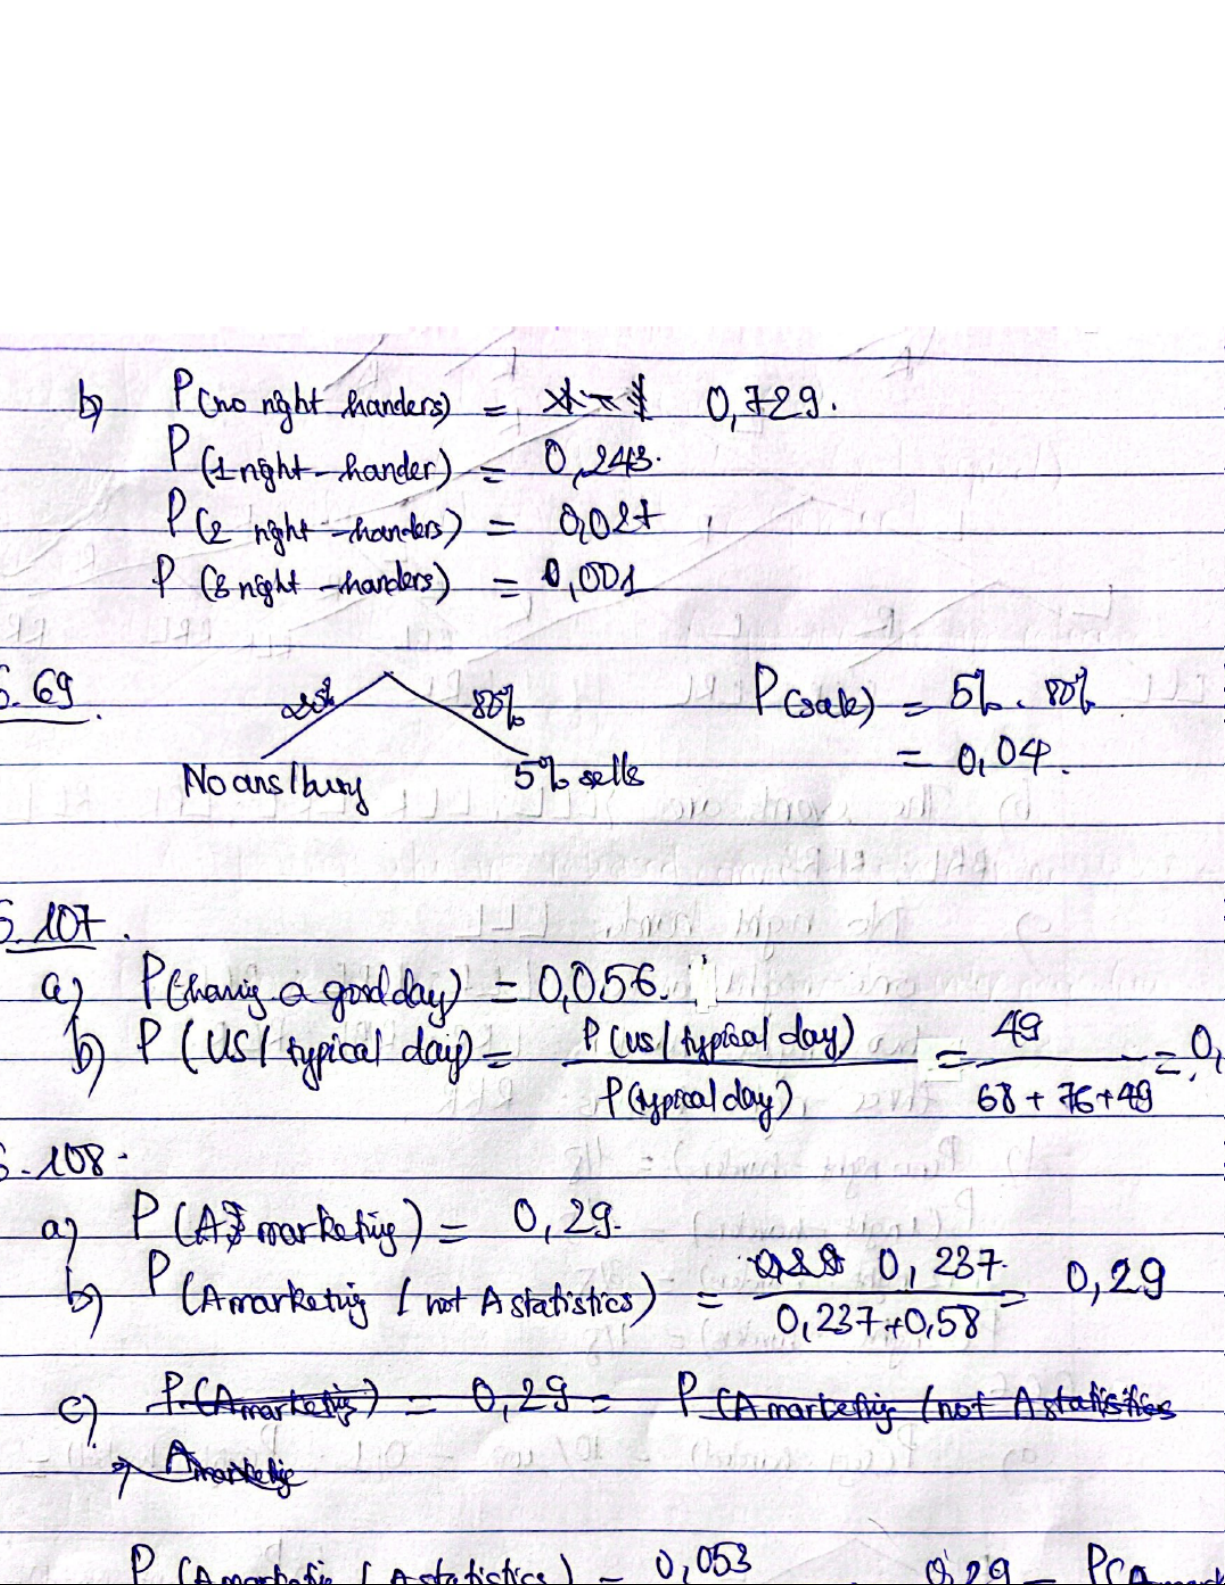 b) P(no right handers) = 0,729.
P(1 right-hander) = 0,243.
P(2 right-handers) = 0,027
P(3 right-handers) = 0,001
6.69.
20% 80%
No ans/busy 5% sells
P(sale) = 5%. 80%
= 0,04.
6.107.
a) P(having a good day) = 0,056.
b) P(US/ typical day) = P(US/ typical day) / P(typical day) = 49 / 68 + 76 + 49 = 0,
6.108.
a) P(A marketing) = 0,29.
b) P(A marketing / not A statistics) = 0,237. / 0,237+0,58 = 0,29
c) P(A marketing) = 0,29 = P(A marketing / not A statistics
=> A marketing
P(A marketing / A statistics) = 0,053 0,29 = P(A